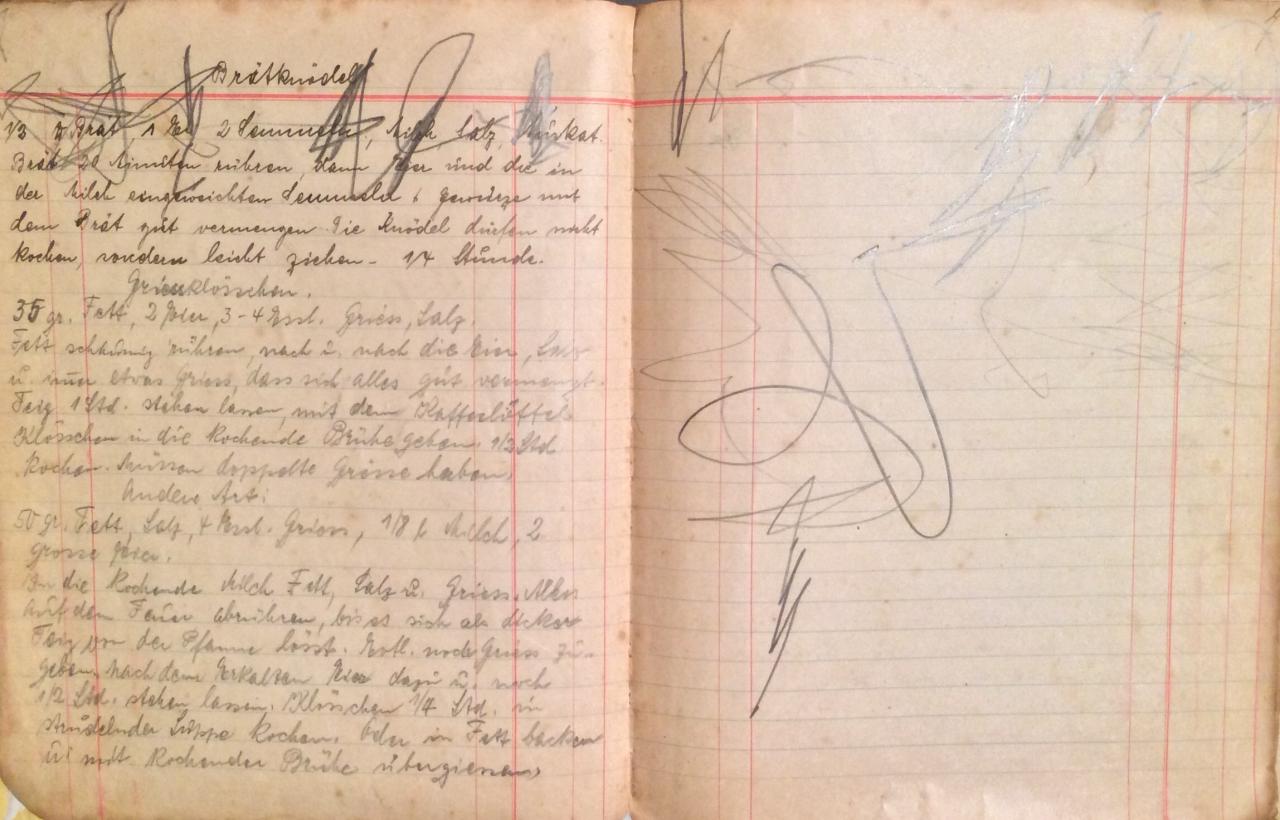 Brätknödel
1/3 Brät, 1 Ei, 2 Semmeln, Milch Salz, Muskat.
Brät 20 Minuten rühren, dann Eier und die in
der Milch eingeweichten Semmeln, gewürze mit
dem Brät gut vermengen. Die Knödel dürfen nicht
kochen, sondern leicht ziehen - 1/4 Stunde.
Griessklösschen.
35 gr. Fett, 2 Eier, 3-4 Essl. Griess, Salz.
Fett schaumig rühren, nach u. nach die Eier, Salz
u. nur etwas Griess, dass sich alles gut vermengt.
Teig 1 Std. stehen lassen, mit dem Kaffeelöffel
Klösschen in die kochende Brühe geben. 1/2 Std
kochen. Müssen doppelte Grösse haben.
Andere Art:
50 gr. Fett, Salz, 4 Essl. Griess, 1/8 l Milch, 2
grosse Eier.
In die kochende Milch Fett, Salz u. Griess. Alles
auf dem Feuer abrühren, bis es sich als dicker
Teig von der Pfanne löst. Evtl. noch Griess zu-
geben. nach dem Erkalten Eier dazu u. noch
1/2 Std. stehen lassen. Klösschen 1/4 Std. in
strudelnder Suppe kochen. Oder in Fett backen
u. mit kochender Brühe übergiessen.